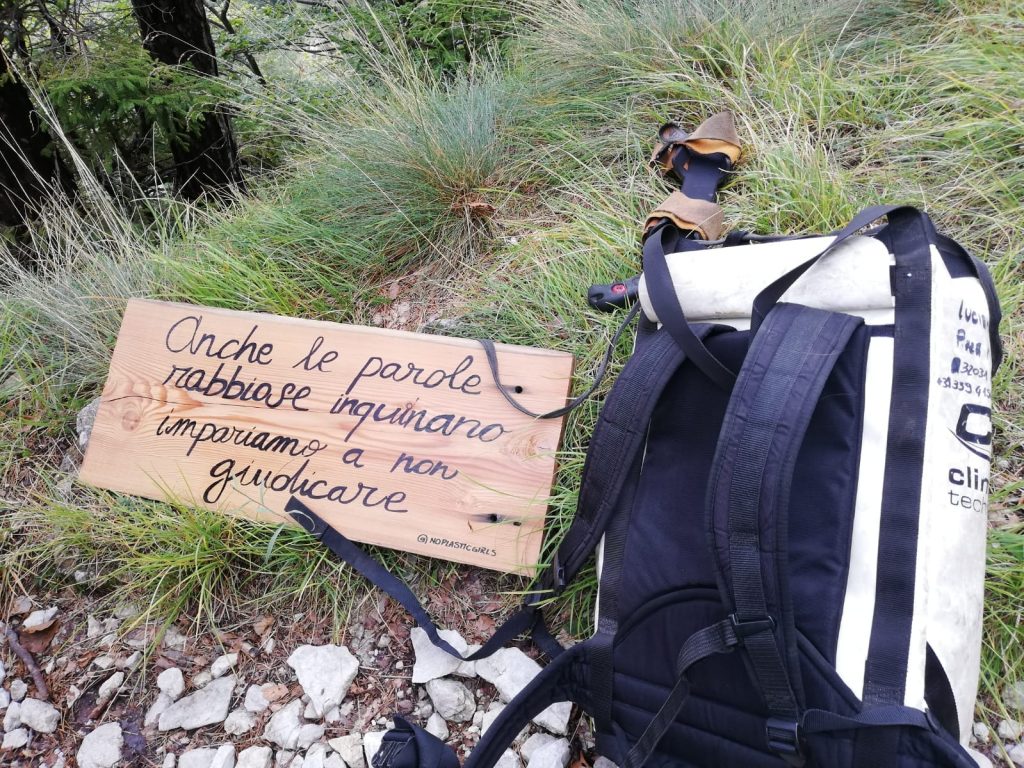 Anche le parole
rabbiose inquinano
impariamo a non
giudicare
@NOPLASTICGIRLS
tech